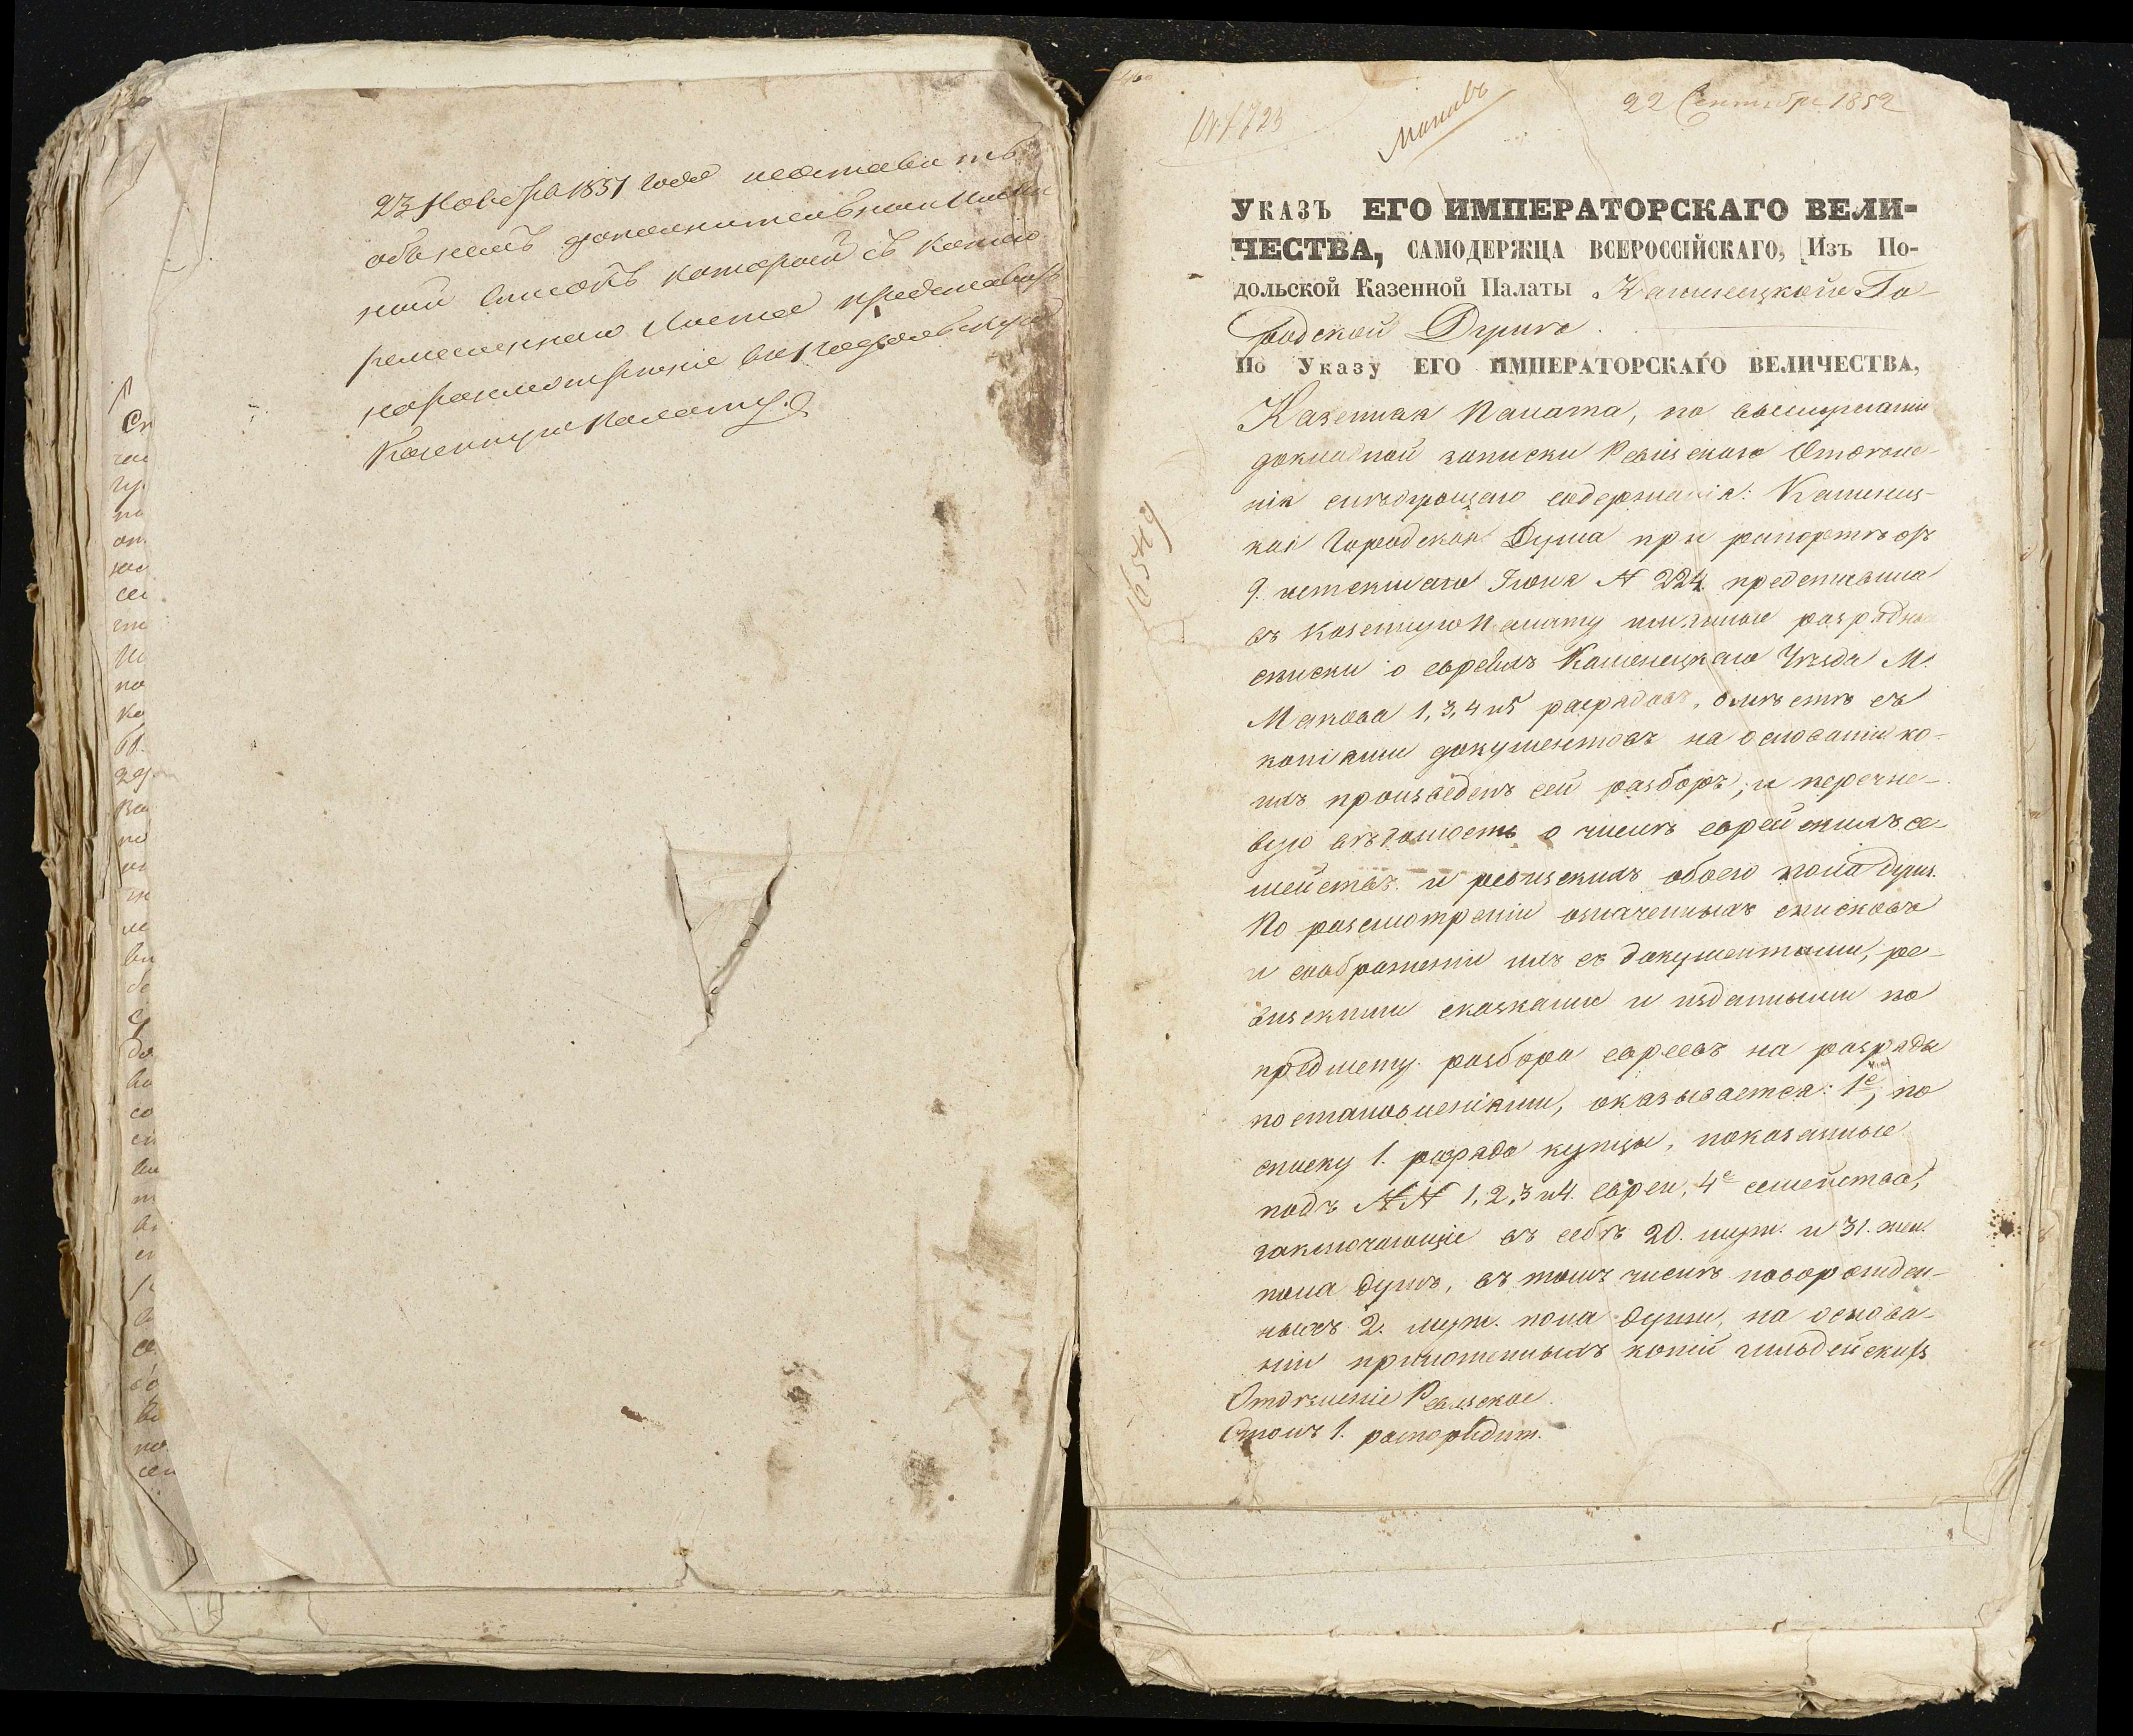 23 Ноября 1851 года
который съ копіею
Казенную Палату.
22 Сентября 1852
Маковъ
УКАЗЪ ЕГО ИМПЕРАТОРСКАГО ВЕЛИ-
ЧЕСТВА, САМОДЕРЖЦА ВСЕРОССІЙСКАГО, Изъ По-
дольской Казенной Палаты Каменецкой Го-
родской Думе.
По Указу ЕГО ИМПЕРАТОРСКАГО ВЕЛИЧЕСТВА,
Казенная Палата, по выслушаніи
докладной записки Ревизскаго Отделе-
нія следующаго содержанія: Каменец-
кая Городская Дума при рапорте отъ
9. истекшаго Іюня N 224 представила
въ Казенную Палату именные разрядные
списки о евреяхъ Каменецкаго Уезда М.
Макова 1, 3, 4 и 5 разрядовъ, вместе съ
копіями документовъ на основаніи ко-
ихъ произведенъ сей разборъ, и перечне-
вую ведомость о числе еврейскихъ се-
мействъ и ревизскихъ обоего пола душъ.
По разсмотреніи означенныхъ списковъ
и соображеніи ихъ съ документами, ре-
визскими сказками и изданными по
предмету разбора евреевъ на разряды
постановленіями, оказывается: 1е, по
списку 1. разряда купцы, показанные
подъ NN 1, 2, 3 и 4. евреи, 4е семейства,
заключающіе въ себе 20. муж. и 31. жен.
пола душъ, въ томъ числе новорожден-
ныхъ 2. муж. пола души, на основа-
ніи приложенныхъ копій гильдейскихъ
Отделеніе Ревизское.
Столъ 1. распорядит.
16549